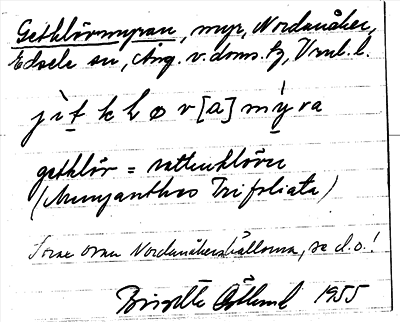 Getklövmyran, myr, Nordanåker,
Edsele sn, Ång. v. doms. fg, Vnrl. l.
jìt k l ø v [a] mỳra
getklöv = vattenklöver
(Menyanthes Trifoliata)
Norr om Nordanåkerskällorna, se d.o.!
Birgitta 1955